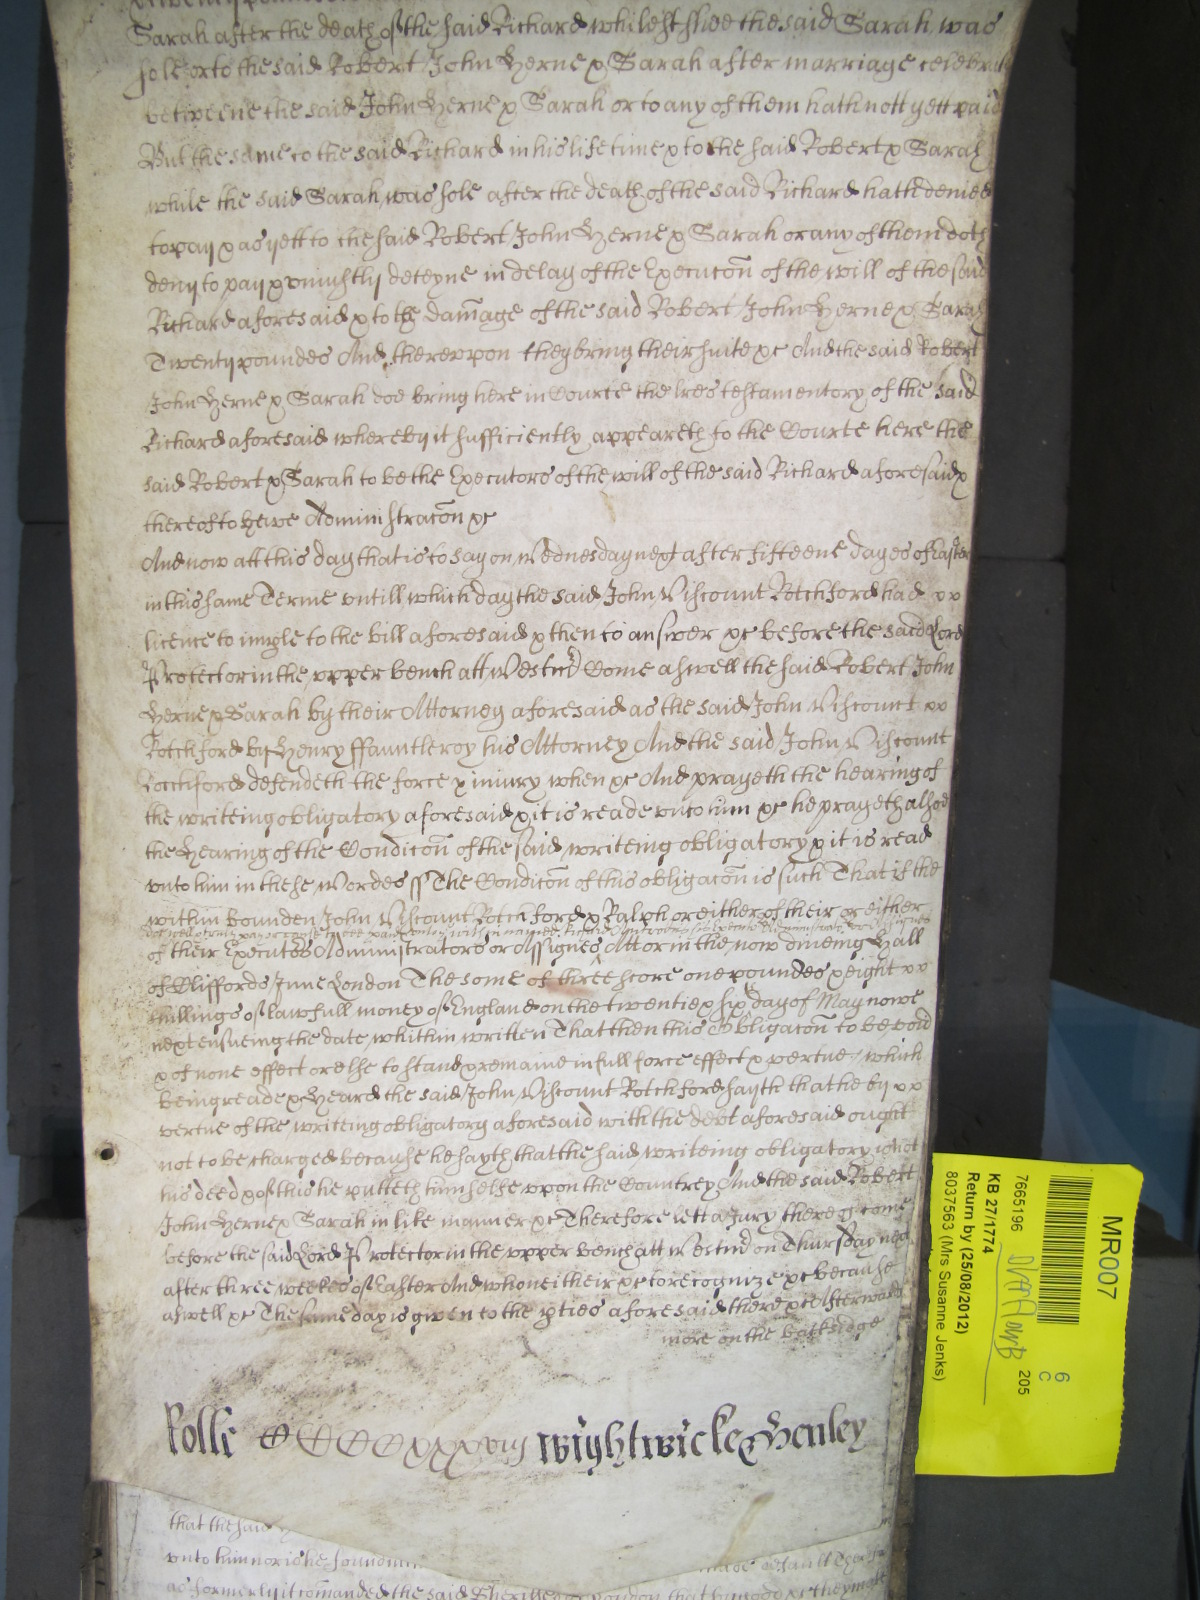 Sarah after the death of the said Richard whilest shee the said Sarah was
sole or to the said Robert John Herne & Sarah after marriage celebrated
betweene the said John Herne & Sarah or to any of them hath nott yett paid
But the same to the said Richard in his life time & to the said Robert & Sarah
while the said Sarah was sole after the death of the said Richard hath denied
to pay & as yett to the said Robert John Herne & Sarah or any of them doth
deny to pay & uniustly deteyne in delay of the Execucon of the will of the said
Richard aforesaid & to the damage of the said Robert John Herne & Sarah
Twenty poundes And thereupon they bring their suite &c And the said Robert
John Herne & Sarah doe bring here in Courte the lres testamentory of the said
Richard aforesaid whereby it sufficiently appeareth to the Courte here the
said Robert & Sarah to be the Executors of the will of the said Richard aforesaid &
thereof to have Administracon &c
And now att this day that is to say on Wednesday next after fifteene dayes of Easter
in this same Terme untill which day the said John Viscount Rotchford had
licence to imple to the bill aforesaid & then to answer &c before the said Lord
Protector in the upper bench att Westmr Come aswell the said Robert John
Herne & Sarah by their Attorney aforesaid as the said John Viscount
Rotchford by Henry ffauntleroy his Attorney And the said John Viscount
Rotchford defendeth the force & iniury when &c And prayeth the hearing of
the writeing obligatory aforesaid & it is reade unto him &c he prayeth alsoe
the Hearing of the Condicon of the said writeing obligatory & it is read
unto him in these Wordes ss The Condicon of this obligacon is such That if the
within bounden John Viscount Rotchford & Ralph or either of their or either
of their Executors Administrators or Assignes Att or in the now dineing Hall
of Cliffords Inne London The some of three score one poundes & eight
shillings of lawfull money of England on the twentie & six day of May nowe
next ensueing the date whithin written That then this Obligacon to be void
& of none effect or else to stand & remaine in full force effect & vertue which
being reade & Heard the said John Viscount Rotchford sayth that he by
vertue of the writeing obligatory aforesaid with the debt aforesaid ought
not to be charged because he sayth that the said writeing obligatory is not
his deed & of this he putteth himselfe upon the Countrey And the said Robert
John Herne & Sarah in like manner &c Therefore lett a Jury thereof come
before the said Lord Protector in the upper bench att Westmr on Thursday next
after three weekes of Easter And who neither &c to recognize &c because
aswell &c The same day is given to the pties aforesaid there &c Afterward
more on the backsidge
Rolle CCCCxxxviij Wightwicke & Henley
that the said
unto him nor is he found
as formerly it comanded the said London that
MR007
7665196
6
C
205
KB 27/1774
Return by (25/08/2012)
8037563 (Mrs Susanne Jenks)